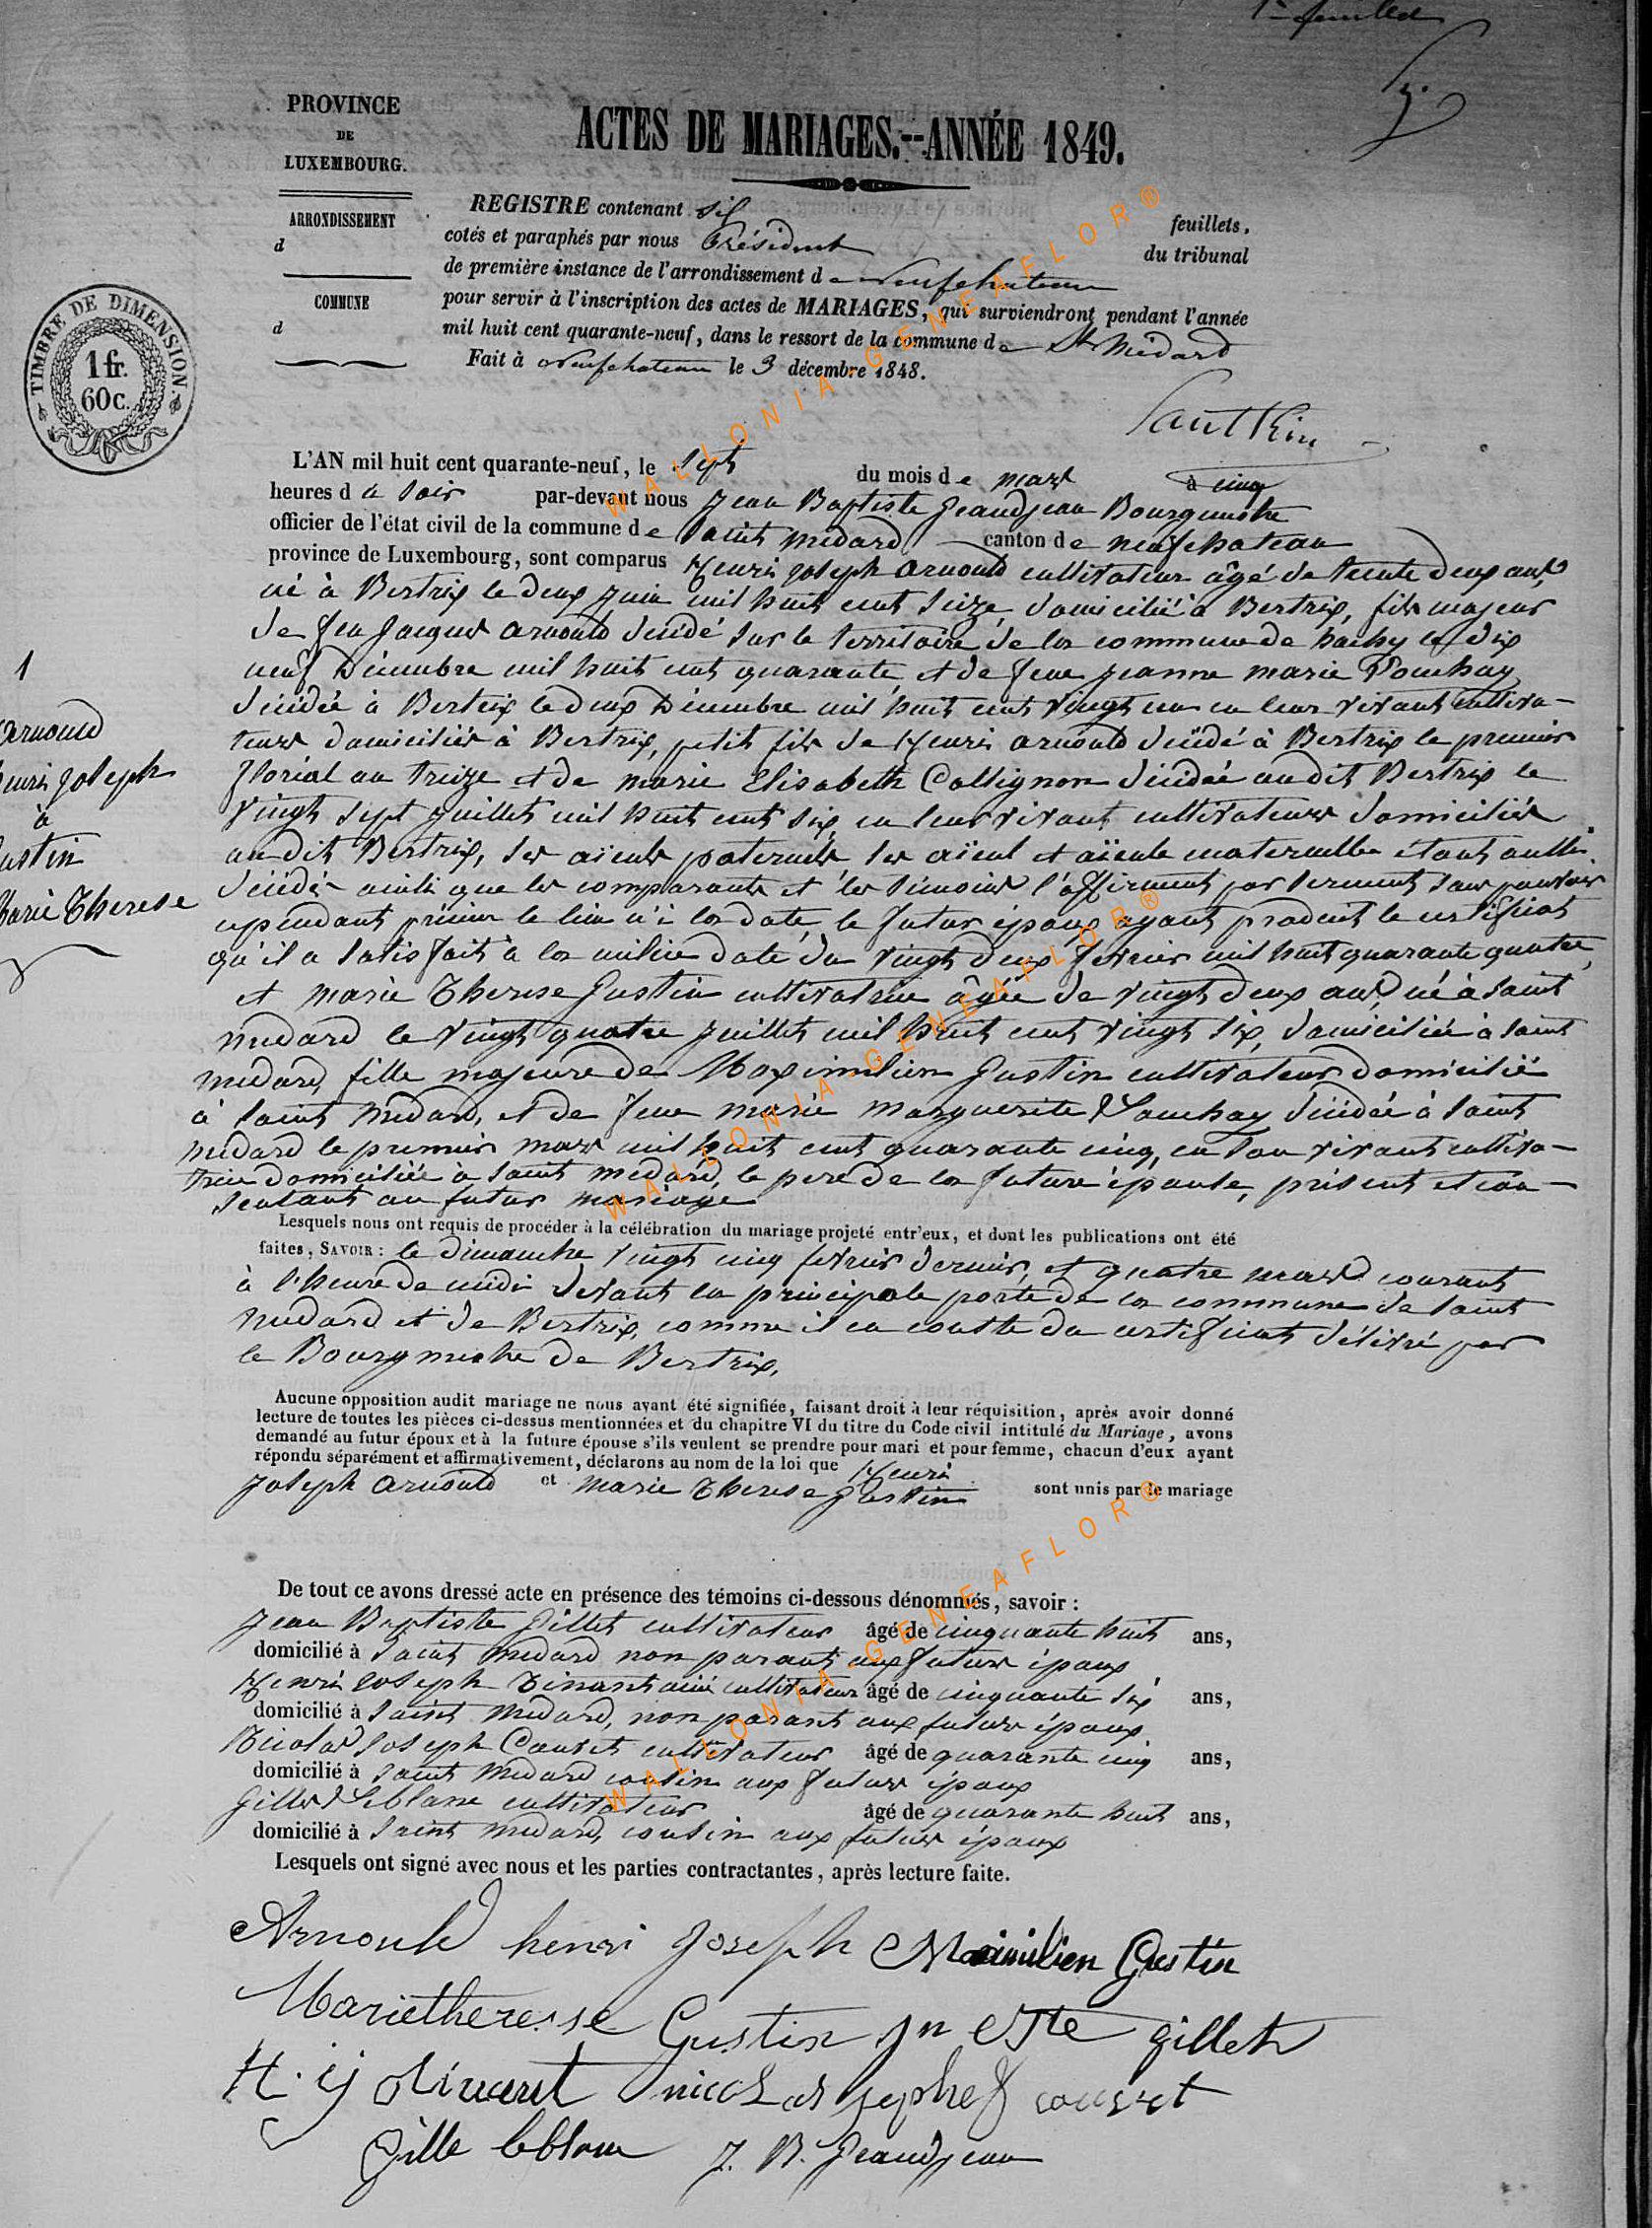 1er feuillet
PROVINCE
DE
LUXEMBOURG.
ARRONDISSEMENT
d
COMMUNE
d
TIMBRE DE DIMENSION.
1 fr.
60 c.
ACTES DE MARIAGES.--ANNÉE 1849.
REGISTRE contenant six feuillets,
cotés et paraphés par nous Président du tribunal
de première instance de l'arrondissement de Neufchateau
pour servir à l'inscription des actes de MARIAGES, qui surviendront pendant l'année
mil huit cent quarante-neuf, dans le ressort de la commune de St Médard
Fait à Neufchateau le 3 décembre 1848.
L'AN mil huit cent quarante-neuf, le sept du mois de mars à cinq
heures du soir par-devant nous Jean Baptiste Grandjean Bourgmestre
officier de l'état civil de la commune de Saint Medard canton de neufchateau
province de Luxembourg, sont comparus Henri Joseph Arnould cultivateur âgé de trente deux ans,
né à Bertrix le deux juin mil huit cent seize, domicilié à Bertrix, fils majeur
de feu Jacques Arnould décédé sur le territoire de la commune de hachy le dix
neuf Décembre mil huit cent quarante, et de feue jeanne marie Pouchay
décédée à Bertrix le deux Décembre mil huit cent vingt un en leur vivant cultiva-
teurs domiciliés à Bertrix, petit fils de Henri Arnould décédé à Bertrix le premier
floréal an treize et de marie Elisabeth Collignon décédée audit Bertrix le
vingt sept juillet mil huit cent six, en leur vivant cultivateurs domiciliés
audit Bertrix, ses aïeuls paternels ses aïeul et aïeule maternelle étant aussi
décédés ainsi que les comparants et les témoins l'affirment par serment sans pouvoir
cependant préciser le lieu ni la date, le futur époux ayant produit le certificat
qu'il a satisfait à la milice daté du vingt deux fevrier mil huit quarante quatre,
et marie Therese Gustin cultivatrice âgée de vingt deux ans, né à Saint
medard le vingt quatre juillet mil huit cent vingt six, domiciliée à Saint
medard, fille majeure de Maximilien Gustin cultivateur domicilié
à Saint Medard, et de feue marie marguerite Pouchay décédée à Saint
medard le premier mars mil huit cent quarante cinq, en son vivant cultiva-
trice domiciliée à Saint medard, le pere de la future épouse, présent et con-
sentant au futur mariage
1
Arnould
henri joseph
à
Gustin
Marie Therese
Lesquels nous ont requis de procéder à la célébration du mariage projeté entr'eux, et dont les publications ont été
faites, SAVOIR : le dimanche vingt cinq fevrier dernier, et quatre mars courant
à l'heure de midi devant la principale porte de la commune de Saint
medard et de Bertrix, comme il en conste du certificat délivré par
le Bourgmestre de Bertrix.
Aucune opposition audit mariage ne nous ayant été signifiée, faisant droit à leur réquisition, après avoir donné
lecture de toutes les pièces ci-dessus mentionnées et du chapitre VI du titre du Code civil intitulé du Mariage, avons
demandé au futur époux et à la future épouse s'ils veulent se prendre pour mari et pour femme, chacun d'eux ayant
répondu séparément et affirmativement, déclarons au nom de la loi que Henri
Joseph Arnould et Marie Therese Gustin sont unis par le mariage
De tout ce avons dressé acte en présence des témoins ci-dessous dénommés, savoir :
Jean Baptiste Gillet cultivateur âgé de cinquante huit ans,
domicilié à Saint medard non parant aux futurs époux
Henri Joseph Dinant ainé cultivateur âgé de cinquante six ans,
domicilié à Saint Medard, non parant aux futurs époux
Nicolas Joseph Couset cultivateur âgé de quarante cinq ans,
domicilié à Saint Medard cousin aux futurs époux
Gilles Leblanc cultivateur âgé de quarante huit ans,
domicilié à Saint Medard, cousin aux futurs époux
Lesquels ont signé avec nous et les parties contractantes, après lecture faite.
Arnould henri Joseph Maximilien Gustin
Marietherese Gustin jn Bte gillet
H. j dinant nicolas josephe couset
Gille leblanc J. B. Grandjean
WALLONIA-GENEAFLOR®
WALLONIA-GENEAFLOR®
WALLONIA-GENEAFLOR®